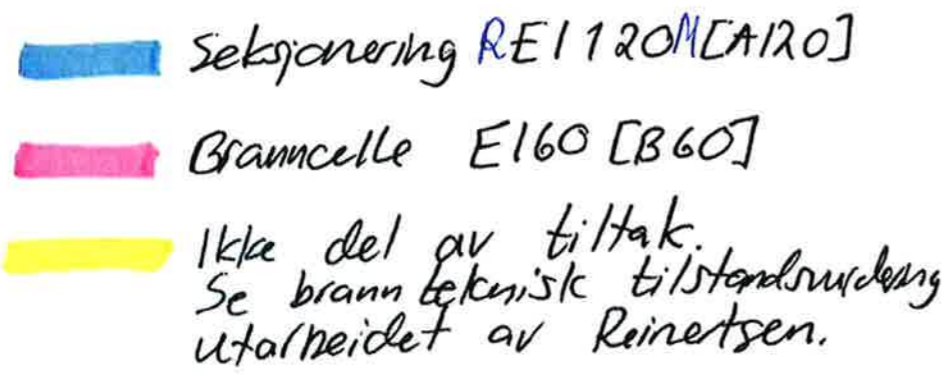 Seksjonering REI120M[A120]
Branncelle EI60 [B60]
Ikke del av tiltak.
Se brannteknisk tilstandsvurdering
utarbeidet av Reinertsen.